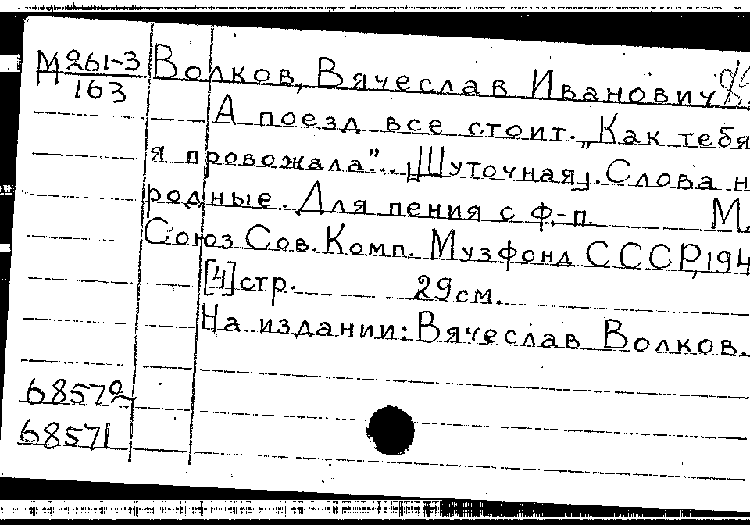 М 261-3
163
Волков, Вячеслав Иванович
А поезд все стоит. „Как тебя
я провожала”. [Шуточная]. Слова н
родные. Для пения с ф-п. М.
Союз Сов. Комп. Музфонд СССР, 194
[4] стр. 29 см.
На издании: Вячеслав Волков.
68572
68571